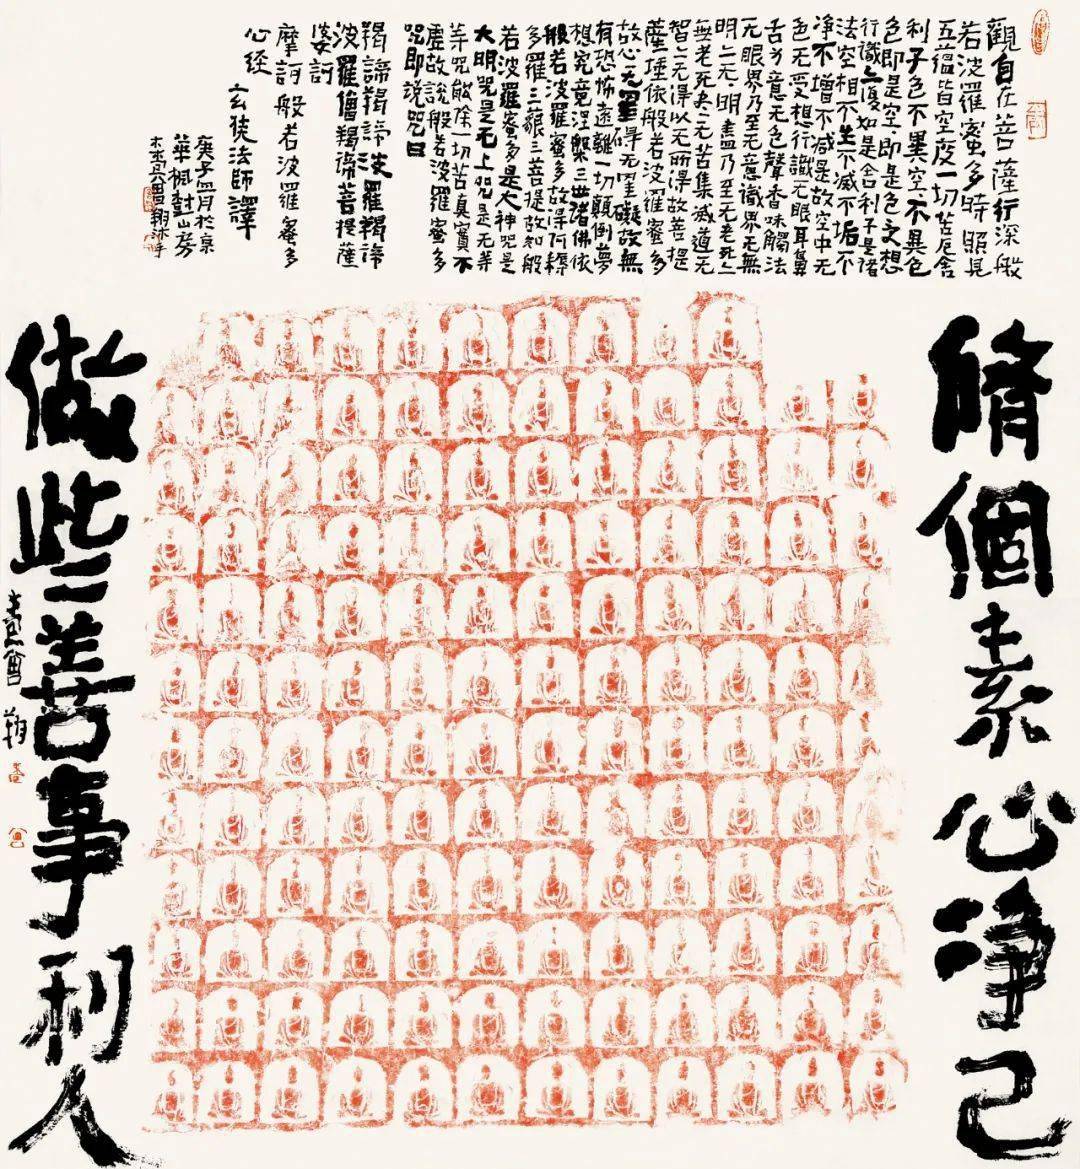 觀自在菩薩行深般
若波羅蜜多時照見
五蘊皆空度一切苦厄舍
利子色不異空不異色
色即是空、即是色受想
行識亦復如是舍利子是諸
法空相不生不滅不垢不
净不增不減是故空中无
色无受想行識无眼耳鼻
舌身意无色聲香味觸法
无眼界乃至无意識界无無
明亦无、明盡乃至无老死亦
無老死尽无苦集滅道无
智亦无得以无所得故菩提
薩埵依般若波羅蜜多
故心无罣碍无罣礙故無
有恐怖遠離一切顛倒夢
想究竟涅槃三世諸佛依
般若波羅蜜多故得阿耨
多羅三藐三菩提故知般
若波羅蜜多是大神咒是
大明咒是无上咒是无等
等咒能除一切苦真實不
虛故說般若波羅蜜多
咒即說咒曰
羯諦羯諦波羅羯諦
波羅僧羯諦菩提薩
婆訶
摩訶般若波羅蜜多
心經
玄奘法師譯
庚子四月於京
華楓對山房
曾翔沐手
脩個素心净己
做些善事利人
曾翔